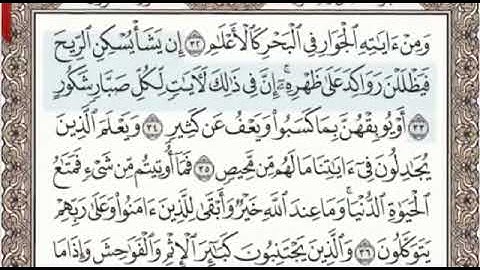 وَمِنْ ءَايَٰتِهِ ٱلْجَوَارِ فِى ٱلْبَحْرِ كَٱلْأَعْلَٰمِ ٣٢ إِن يَشَأْ يُسْكِنِ ٱلرِّيحَ
فَيَظْلَلْنَ رَوَاكِدَ عَلَىٰ ظَهْرِهِۦٓ ۚ إِنَّ فِى ذَٰلِكَ لَءَايَٰتٍ لِّكُلِّ صَبَّارٍ شَكُورٍ
٣٣ أَوْ يُوبِقْهُنَّ بِمَا كَسَبُوا۟ وَيَعْفُ عَن كَثِيرٍ ٣٤ وَيَعْلَمَ ٱلَّذِينَ
يُجَٰدِلُونَ فِىٓ ءَايَٰتِنَا مَا لَهُم مِّن مَّحِيصٍ ٣٥ فَمَآ أُوتِيتُم مِّن شَىْءٍ فَمَتَٰعُ
ٱلْحَيَوٰةِ ٱلدُّنْيَا ۖ وَمَا عِندَ ٱللَّهِ خَيْرٌ وَأَبْقَىٰ لِلَّذِينَ ءَامَنُوا۟ وَعَلَىٰ رَبِّهِمْ
يَتَوَكَّلُونَ ٣٦ وَٱلَّذِينَ يَجْتَنِبُونَ كَبَٰٓئِرَ ٱلْإِثْمِ وَٱلْفَوَٰحِشَ وَإِذَا مَا